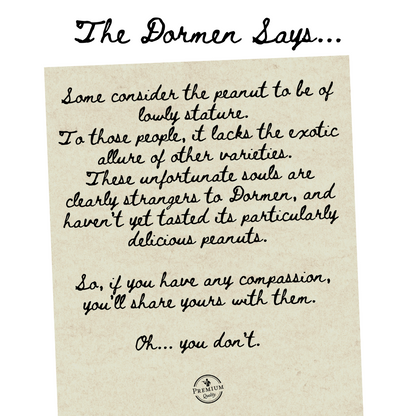 The Dormen Says...
Some consider the peanut to be of
lowly stature.
To those people, it lacks the exotic
allure of other varieties.
These unfortunate souls are
clearly strangers to Dormen, and
haven't yet tasted its particularly
delicious peanuts.
So, if you have any compassion,
you'll share yours with them.
Oh... you don't.
PREMIUM
Quality